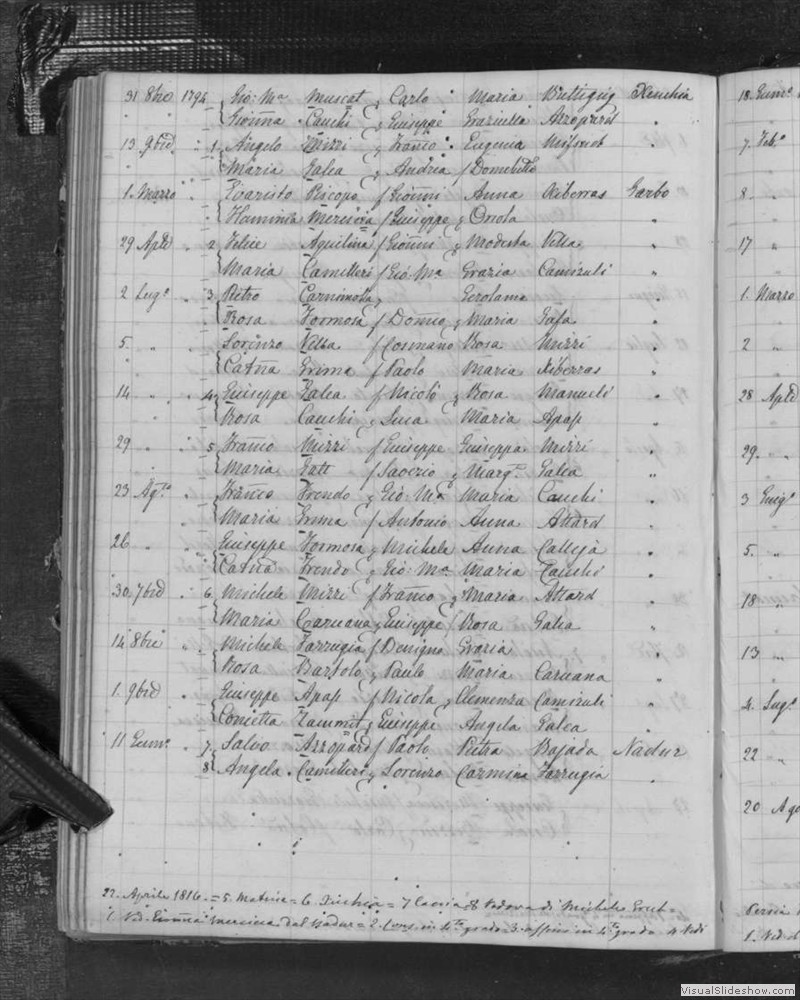 31 8bre 1794 Gio: Ma Muscat Carlo Maria Buttigieg Xeuchia
Gioñna Cauchi Giuseppe Graziella Azzopard
13 9bre 1 Angelo Mizzi Franco Eugenia Mifsud
Maria Galea Andria Domeneca
1 Marzo Evaristo Piscopo Gioñni Anna Xiberras Garbo
Flaminia Mercieca Giuseppe Orsola
29 Aple 2 Felice Aquilina Gioñni Modesta Vella
Maria Camilleri Gio: Ma Grazia Camizuli
2 Lugo 3 Pietro Gerolama
Rosa Formosa Domco Maria Gafa
5 Lorenzo Vella Cosmano Rosa Mizzi
Catña Grima Paolo Maria Xiberras
14 4 Giuseppe Galea Nicolo Rosa Manueli
Rosa Cauchi Luca Maria Apap
29 5 Franco Mizzi Giuseppe Giuseppa Mizzi
Maria Gatt Saverio Margta Galea
23 Agto Franco Frendo Gio: Ma Maria Cauchi
Maria Grima Antonio Anna Attard
26 Giuseppe Formosa Michele Anna Calleja
Catña Frendo Gio: Ma Maria Cauchi
30 7bre 6 Michele Mizzi Franco Maria Attard
Maria Caruana Giuseppe Rosa Galea
14 8bre Michele Farrugia Benigno Grazia
Rosa Bartolo Paulo Maria Caruana
1 9bre Giuseppe Apap Nicola Clemenza Camizuli
Concetta Zammit Giuseppe Angela Galea
11 Genno 7 Salvo Azzopard Paolo Pietra Bajada Nadur
8 Angela Camilleri Lorenzo Carmina Farrugia
22. Aprile 1816. = 5. Matrice = 6. Xeuchia = 7 8 Vedova di Michele
1. Ved. Gioñna Mercieca dal Nadur = 2. Cons. in 4to grado = 3. affini in 4to grado 4 Vedi
18 Genno
7 Febo
8
17
1 Marzo
2
28 Aple
29
3 Giugo
5
18
13
4 Lugo
22
20 Ago
1. Ved. d
VisualSlideshow.com